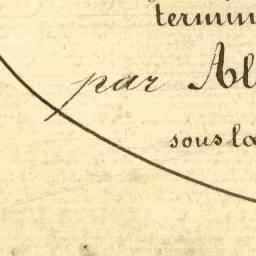 termin
par Al
sous la